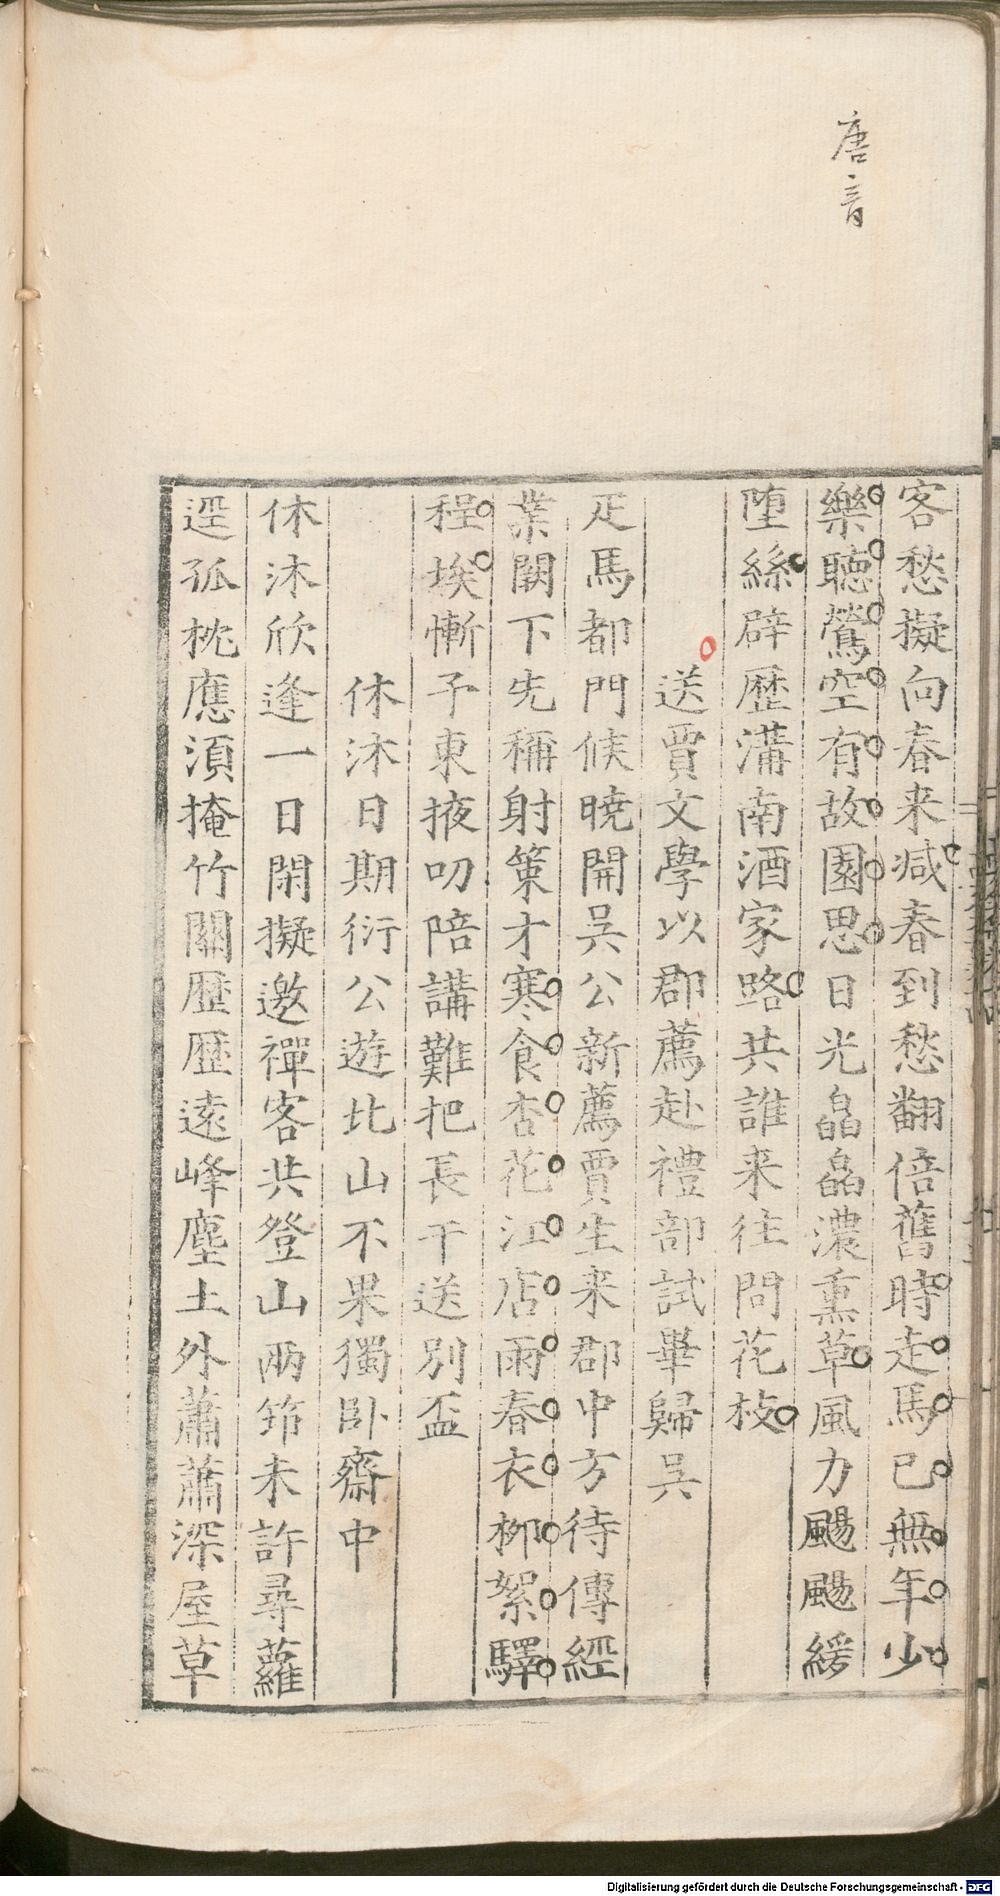 唐音
客愁擬向春来减春到愁翻倍舊時走馬已無年少
樂聴鶯空有故園思日光皛皛濃熏草風力颺颺緩
堕絲辟歷溝南酒家路共誰来往問花枝
送賈文學以郡薦赴禮部試畢歸吳
疋馬都門候曉開吳公新薦賈生来郡中方待傳經
業闕下先稱射策才寒食杏花江店雨春衣柳絮驛
程埃慚予東掖叨陪講難把長干送別盃
休沐日期衍公遊北山不果獨卧齋中
休沐欣逢一日閑擬邀禪客共登山兩笻未許尋蘿
逕孤枕應須掩竹關歷歷遠峰塵土外蕭蕭深屋草
Digitalisierung gefördert durch die Deutsche Forschungsgemeinschaft - DFG